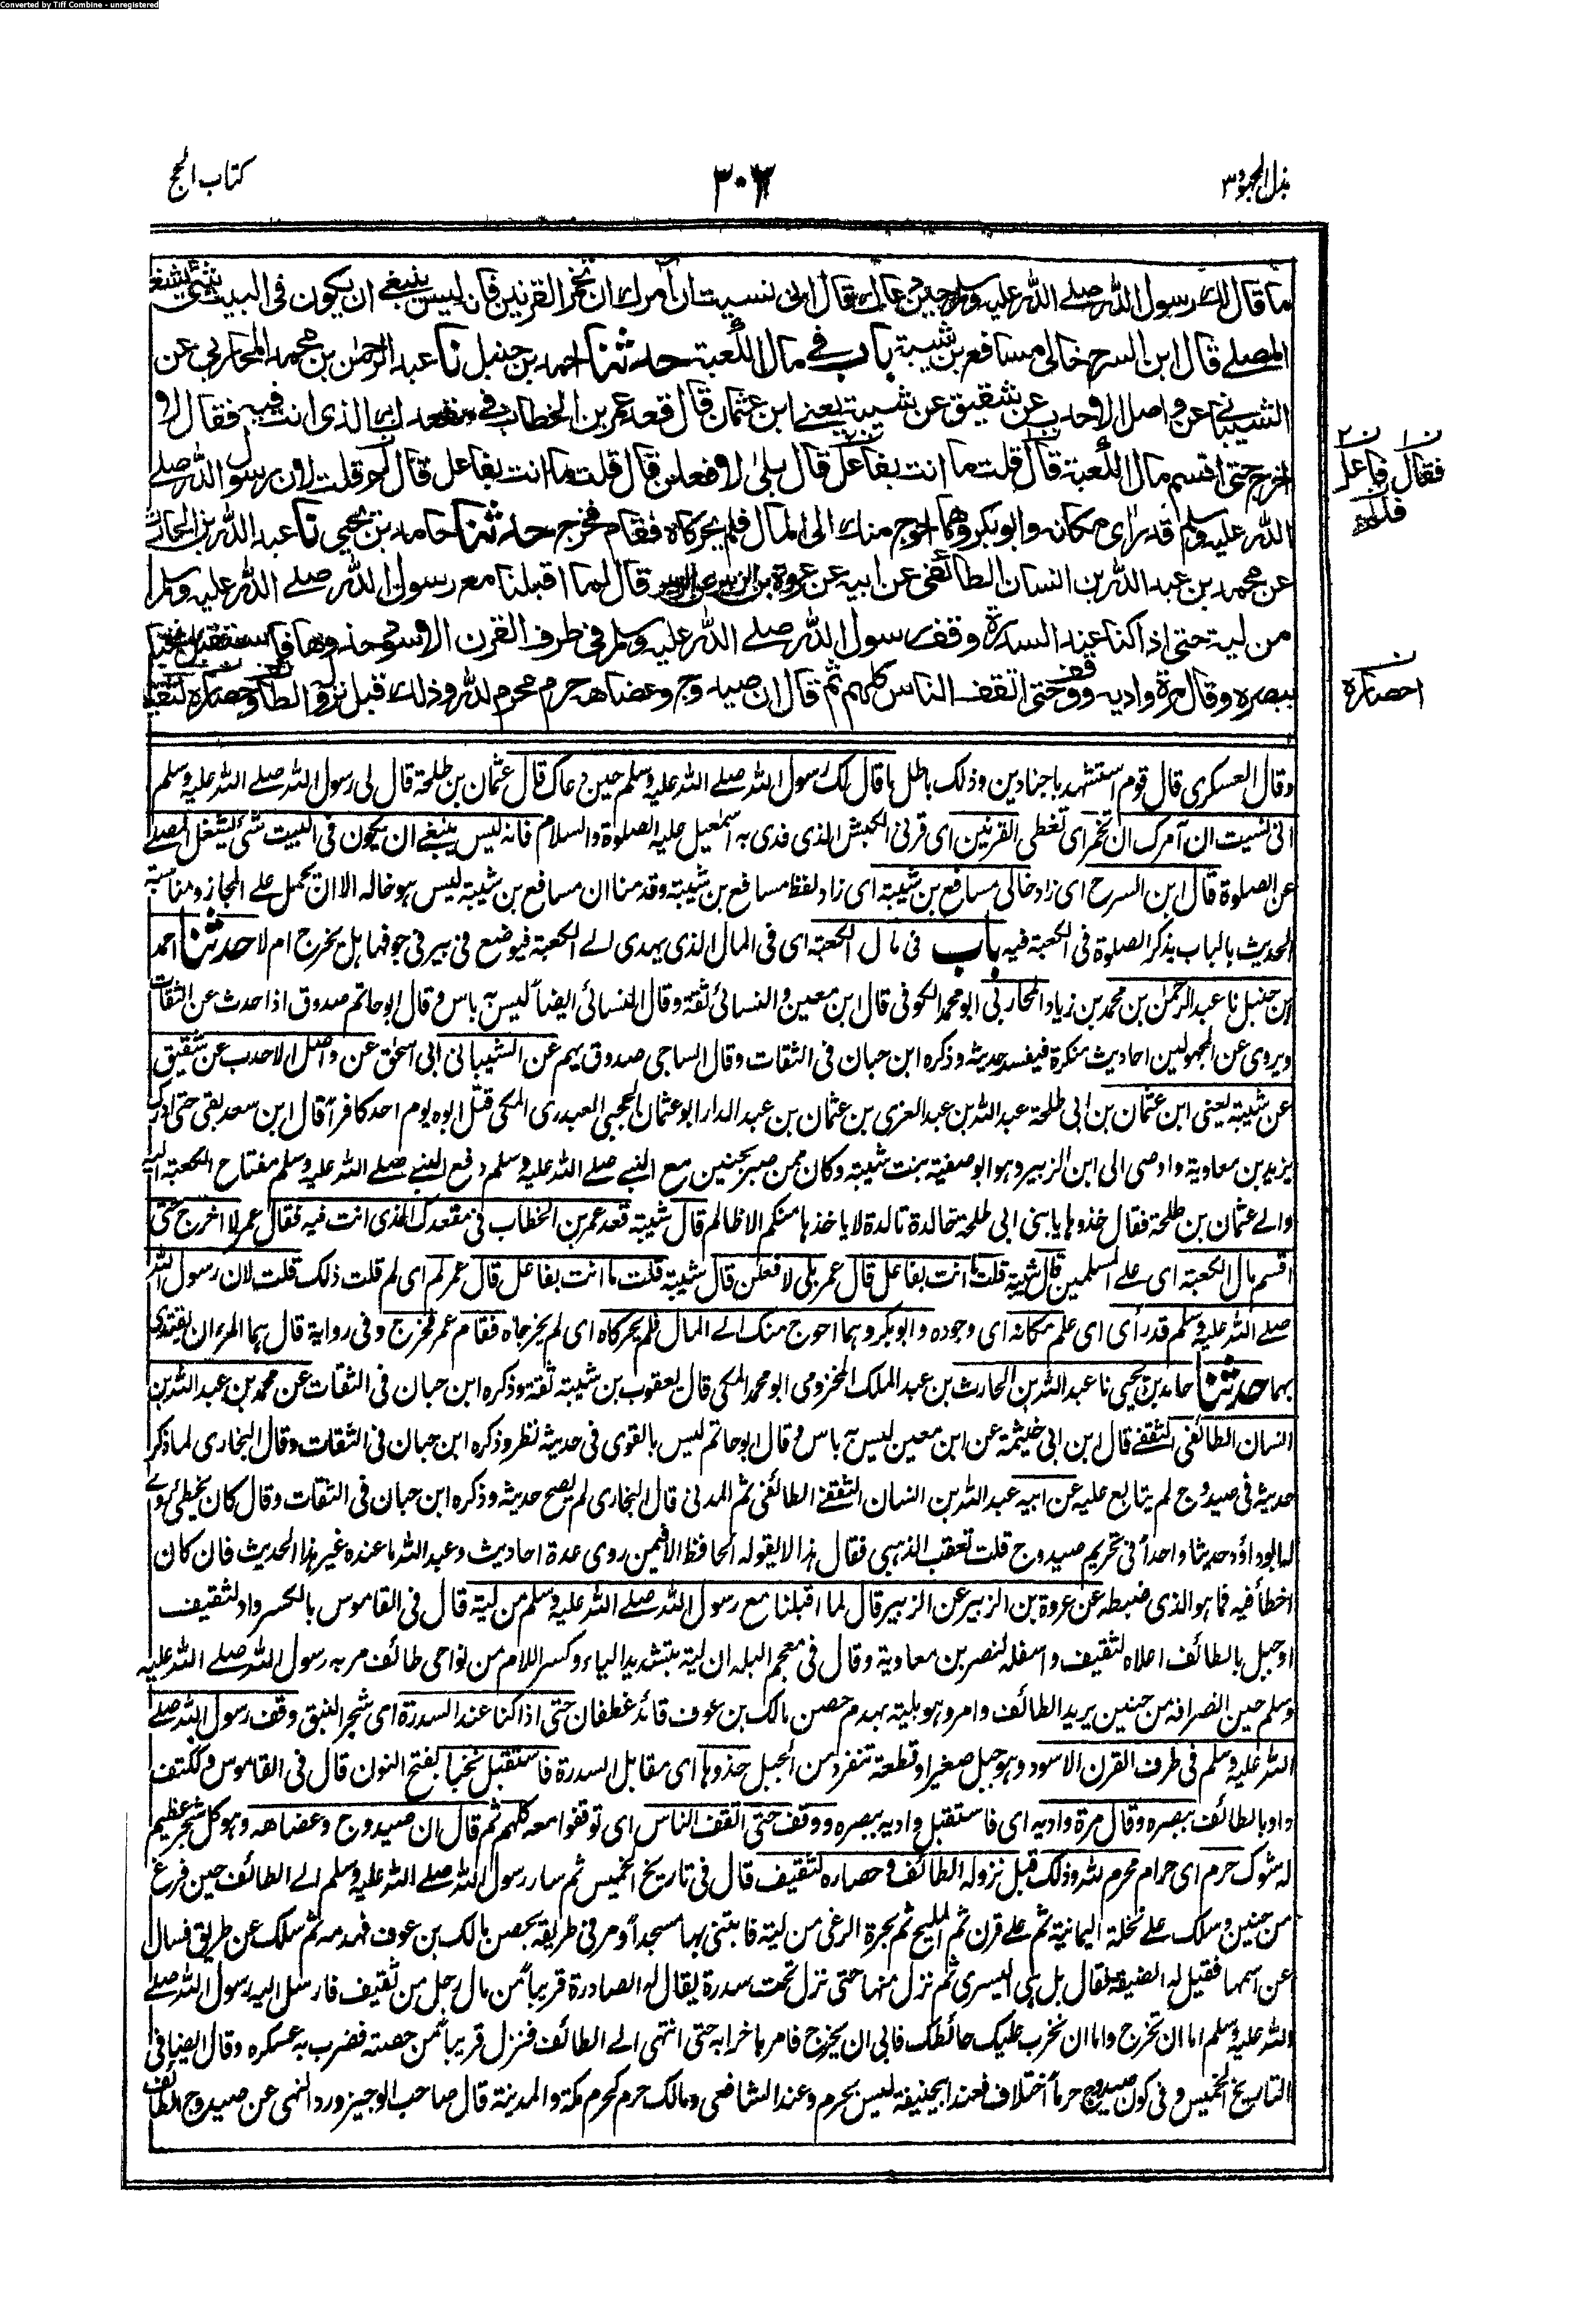 Converted by Tiff Combine - unregistered
بذل المجهود ٣
٣٠٢
كتاب الحج
ما قال لك رسول الله صلے الله عليه وسلم حين دعاك قال انى نسيت ان آمرك ان تخمر القرنين فانه ليس ينبغے ان يكون فى البيت شئ يشغل
المصلے قال ابن السرح خالى مسافع بن شيبة باب فے مال الكعبة حدثنا احمد بن حنبل نا عبد الرحمن بن محمد المحاربى عن
الشيبانے عن واصل الاحدب عن شقيق عن شيبة يعنے ابن عثمان قال قعد عمر بن الخطاب فے مقعدك الذى انت فيه فقال لا
اخرج حتى اقسم مال الكعبة قال قلت ما انت بفاعل قال بلى لافعلن قال قلت ما انت بفاعل قال لم قلت لان رسول الله صلے
الله عليه وسلم قد رأى مكانه وابو بكر وهما احوج منك الى المال فلم يحركاه فقام فخرج حدثنا حامد بن يحيى نا عبد الله بن الحارث
عن محمد بن عبد الله بن انسان الطائفى عن ابيه عن عروة بن الزبير عن الزبير قال لما اقبلنا مع رسول الله صلے الله عليه وسلم
من لية حتى اذا كنا عند السدرة وقف رسول الله صلے الله عليه وسلم فى طرف القرن الاسود حذوها فاستقبل نخبا
ببصره وقال مرة واديه ووقف حتى اتقف الناس كلهم ثم قال ان صيد وج وعضاهه حرم محرم لله وذلك قبل نزوله الطائف وحصاره لثقيف
ن١ ن٢
فقال فاعل
فلم
ن
احصاره
وقال العسكرى قال قوم استشهد باجنادين وذلك باطل ما قال لك رسول الله صلے الله عليه وسلم حين دعاك قال عثمان بن طلحة قال لى رسول الله صلے الله عليه وسلم
انى نسيت ان آمرك ان تخمر اى تغطى القرنين اى قرنى الكبش الذى فدى به اسمعيل عليه الصلوة والسلام فانه ليس ينبغے ان يكون فى البيت شئ يشغل المصلے
عن الصلوة قال ابن السرح اى زاد خالى مسافع بن شيبة اى زاد لفظ مسافع بن شيبة وقد منا ان مسافع بن شيبة ليس هو خاله الا ان يحمل علے المجاز ومناسبة
الحديث بالباب بذكر الصلوة فى الكعبة فيه باب فى مال الكعبة اى فى المال الذى يهدى الے الكعبة فيوضع فى بير فى جوفها هل يخرج ام لا حدثنا احمد
بن حنبل نا عبد الرحمن بن محمد بن زياد المحاربى ابو محمد الكوفى قال ابن معين والنسائى ثقة وقال النسائى ايضاً ليس به باس وقال ابو حاتم صدوق اذا حدث عن الثقات
ويروى عن المجهولين احاديث منكرة فيفسد حديثه وذكره ابن حبان فى الثقات وقال الساجى صدوق يهم عن الشيبانى ابى اسحق عن واصل الاحدب عن شقيق
عن شيبة يعنى ابن عثمان بن ابى طلحة عبد الله بن عبد العزى بن عثمان بن عبد الدار ابو عثمان الحجبى العبدرى المكى قتل ابوه يوم احد كافرا قال ابن سعد بقى حتى ادرك
يزيد بن معاوية واوصى الى ابن الزبير وهو ابو صفية بنت شيبة وكان ممن صبر بحنين مع النبے صلے الله عليه وسلم دفع النبے صلے الله عليه وسلم مفتاح الكعبة اليه
والے عثمان بن طلحة فقال خذوها يا بنى ابى طلحة خالدة تالدة لا ياخذها منكم الا ظالم قال شيبة قعد عمر بن الخطاب فى مقعدك الذى انت فيه فقال عمر لا اخرج حتى
اقسم مال الكعبة اى علے المسلمين قال شيبة قلت ما انت بفاعل قال عمر بلى لافعلن قال شيبة قلت ما انت بفاعل قال عمر لم اى لم قلت ذلك قلت لان رسول الله
صلے الله عليه وسلم قد رأى اى علم مكانه اى وجوده وابو بكر وهما احوج منك الے المال فلم يحركاه اى لم يخرجاه فقام عمر فخرج وفى رواية قال هما المرءان يقتدى
بهما حدثنا حامد بن يحيى نا عبد الله بن الحارث بن عبد الملك المخزومى ابو محمد المكى قال يعقوب بن شيبة ثقة وذكره ابن حبان فى الثقات عن محمد بن عبد الله بن
انسان الطائفى الثقفے قال ابن ابى خيثمة عن ابن معين ليس به باس وقال ابو حاتم ليس بالقوى فى حديثه نظر وذكره ابن حبان فى الثقات وقال البخارى لما ذكر
حديثه فى صيد وج لم يتابع عليه عن ابيه عبد الله بن انسان الثقفے الطائفى ثم المدنى قال البخارى لم يصح حديثه وذكره ابن حبان فى الثقات وقال كان يخطئ روے
له ابو داؤد حديثا واحداً فى تحريم صيد وج قلت تعقب الذهبى فقال هذا لا يقوله الحافظ الا فيمن روى عدة احاديث وعبد الله ما عنده غير هذا الحديث فان كان
اخطأ فيه فما هو الذى ضبطه عن عروة بن الزبير عن الزبير قال لما اقبلنا مع رسول الله صلے الله عليه وسلم من لية قال فى القاموس بالكسر واد لثقيف
او جبل بالطائف اعلاه لثقيف واسفله لنصر بن معاوية وقال فى معجم البلدان لية بتشديد الياء وكسر اللام من نواحى طائف مر به رسول الله صلے الله عليه
وسلم حين انصرافه من حنين يريد الطائف وامر وهو بلية بهدم حصن مالك بن عوف قائد غطفان حتى اذا كنا عند السدرة اى شجر النبق وقف رسول الله صلے
الله عليه وسلم فى طرف القرن الاسود وهو جبل صغير او قطعة تنفرد من الجبل حذوها اى مقابل السدرة فاستقبل نخبا بفتح النون قال فى القاموس وككتف
واد بالطائف ببصره وقال مرة واديه اى فاستقبل واديه ببصره ووقف حتى اتقف الناس اى توقفوا معه كلهم ثم قال ان صيد وج وعضاهه وهو كل شجر عظيم
له شوك حرم اى حرام محرم لله وذلك قبل نزوله الطائف وحصاره لثقيف قال فى تاريخ الخميس ثم سار رسول الله صلے الله عليه وسلم الے الطائف حين فرغ
من حنين وسلك علے نخلة اليمانية ثم علے قرن ثم المليح ثم بحرة الرغى من لية فابتنى بها مسجداً ومر فى طريقه بحصن مالك بن عوف فهدمه ثم سلك عن طريق فسال
عن اسمها فقيل له الضيقة فقال بل هى اليسرى ثم نزل منها حتى نزل تحت سدرة يقال لها الصادرة قريباً من مال رجل من ثقيف فارسل اليه رسول الله صلے
الله عليه وسلم اما ان تخرج واما ان نخرب عليك حائطك فابى ان يخرج فامر باخرابه حتى انتهى الے الطائف فنزل قريباً من حصنه فضرب به عسكره وقال ايضا فى
التاريخ الخميس وفى كون صيد وج حرماً اختلاف فعند ابيحنيفة ليس بحرم وعند الشافعى ومالك حرم كحرم مكة والمدينة قال صاحب الوجيز ورد النهى عن صيد وج الطائف